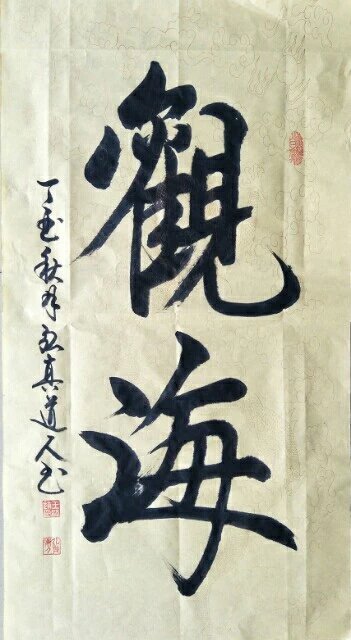 觀海
丁酉秋月真道人书